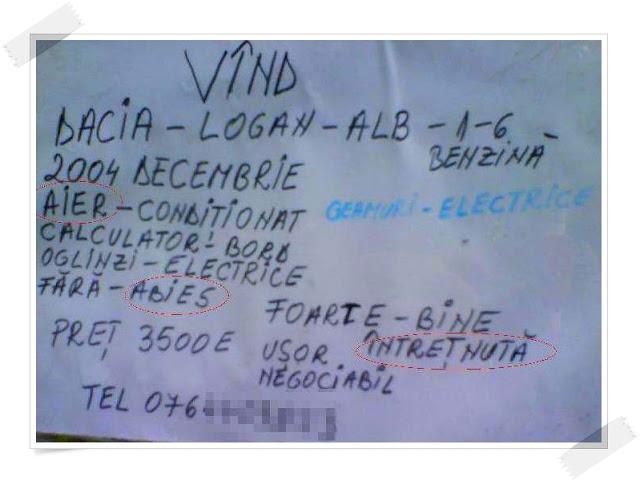 VÎND
DACIA - LOGAN - ALB - 1-6 -
BENZINĂ
2004 DECEMBRIE
AIER - CONDIȚIONAT GEAMURI - ELECTRICE
CALCULATOR - BORD
OGLINZI - ELECTRICE
FĂRĂ - ABIES
FOARTE - BINE
PREȚ 3500 E
ÎNTREȚNUTĂ
UȘOR
NEGOCIABIL
TEL 076